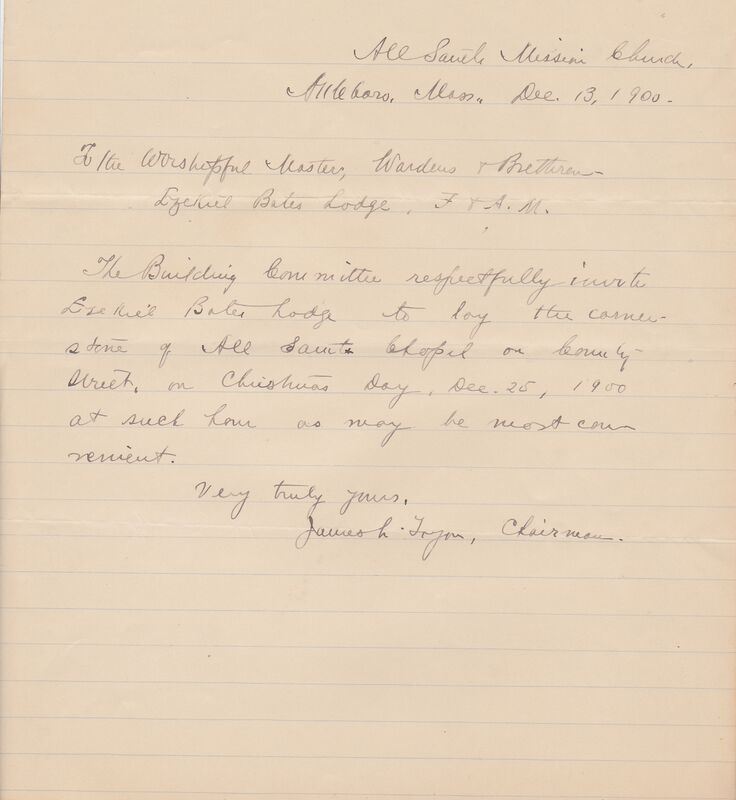 All Saints Mission Church,
Attleboro, Mass., Dec. 13, 1900.
To the Worshipful Master, Wardens & Brethren
Ezekiel Bates Lodge, F & A. M.
The Building Committee respectfully invite
Ezekiel Bates Lodge to lay the corner-
stone of All Saints Chapel on County
Street, on Christmas Day, Dec. 25, 1900
at such hour as may be most con-
venient.
Very truly yours,
Chairman.